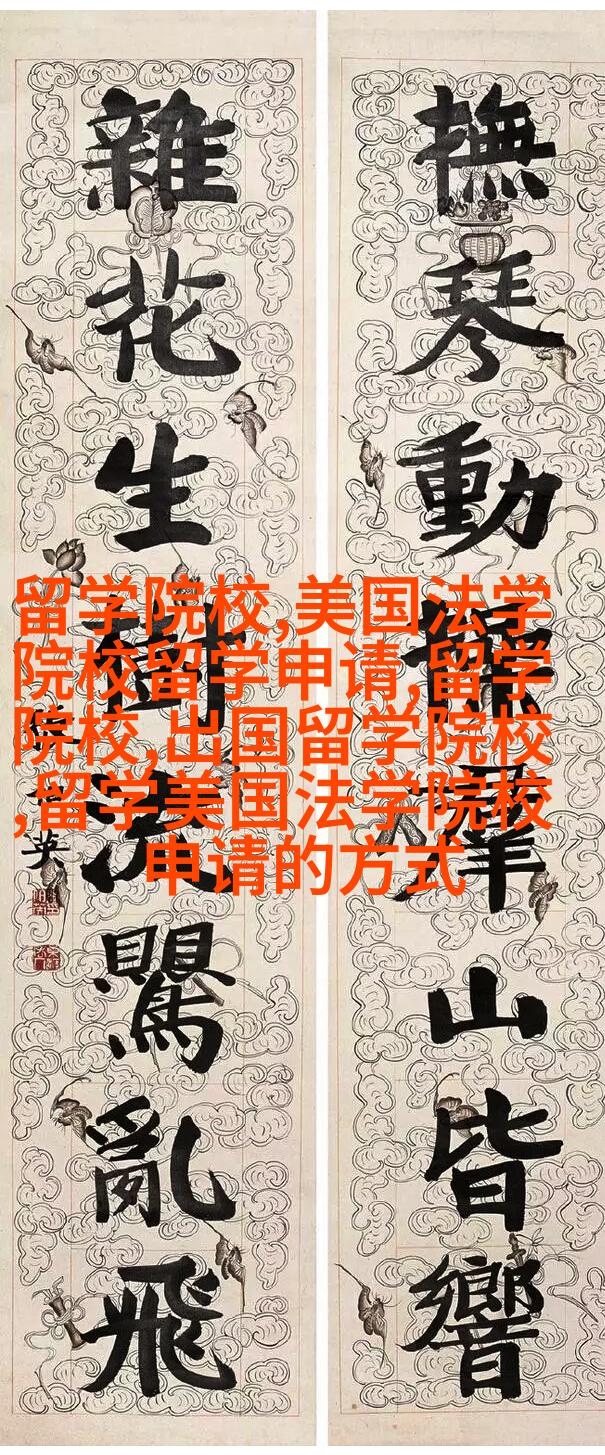 撫琴動操羣山皆響
雜花生樹流鸎亂飛
英
留学院校,美国法学
院校留学申请,留学
院校,出国留学院校
,留学美国法学院校
申请的方式